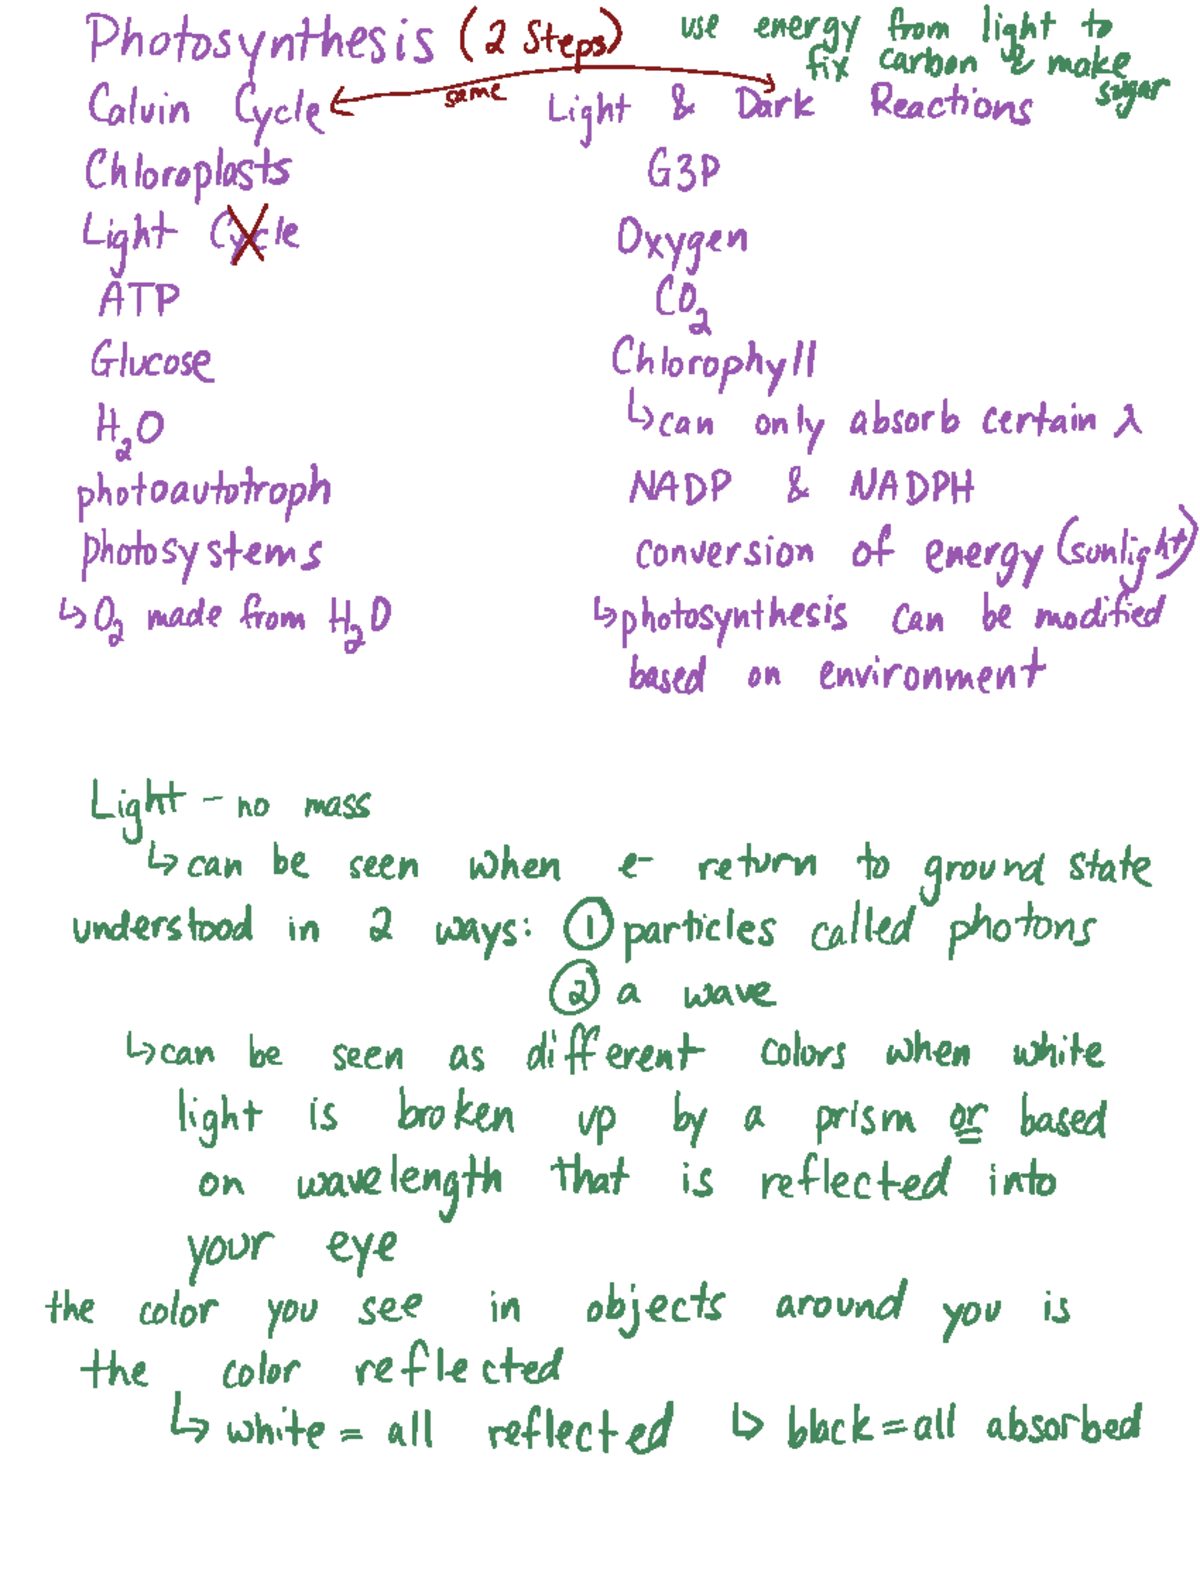 Photosynthesis (2 Steps) use energy from light to
fix carbon & make
sugar
Calvin Cycle same Light & Dark Reactions
Chloroplasts G3P
Light Cycle Oxygen
ATP CO₂
Glucose Chlorophyll
H₂O ↳can only absorb certain λ
photoautotroph NADP & NADPH
photosystems conversion of energy (sunlight)
↳ O₂ made from H₂O ↳photosynthesis can be modified
based on environment
Light - no mass
↳ can be seen when e- return to ground state
understood in 2 ways: ① particles called photons
② a wave
↳can be seen as different colors when white
light is broken up by a prism or based
on wavelength that is reflected into
your eye
the color you see in objects around you is
the color reflected
↳ white = all reflected ↳ black = all absorbed